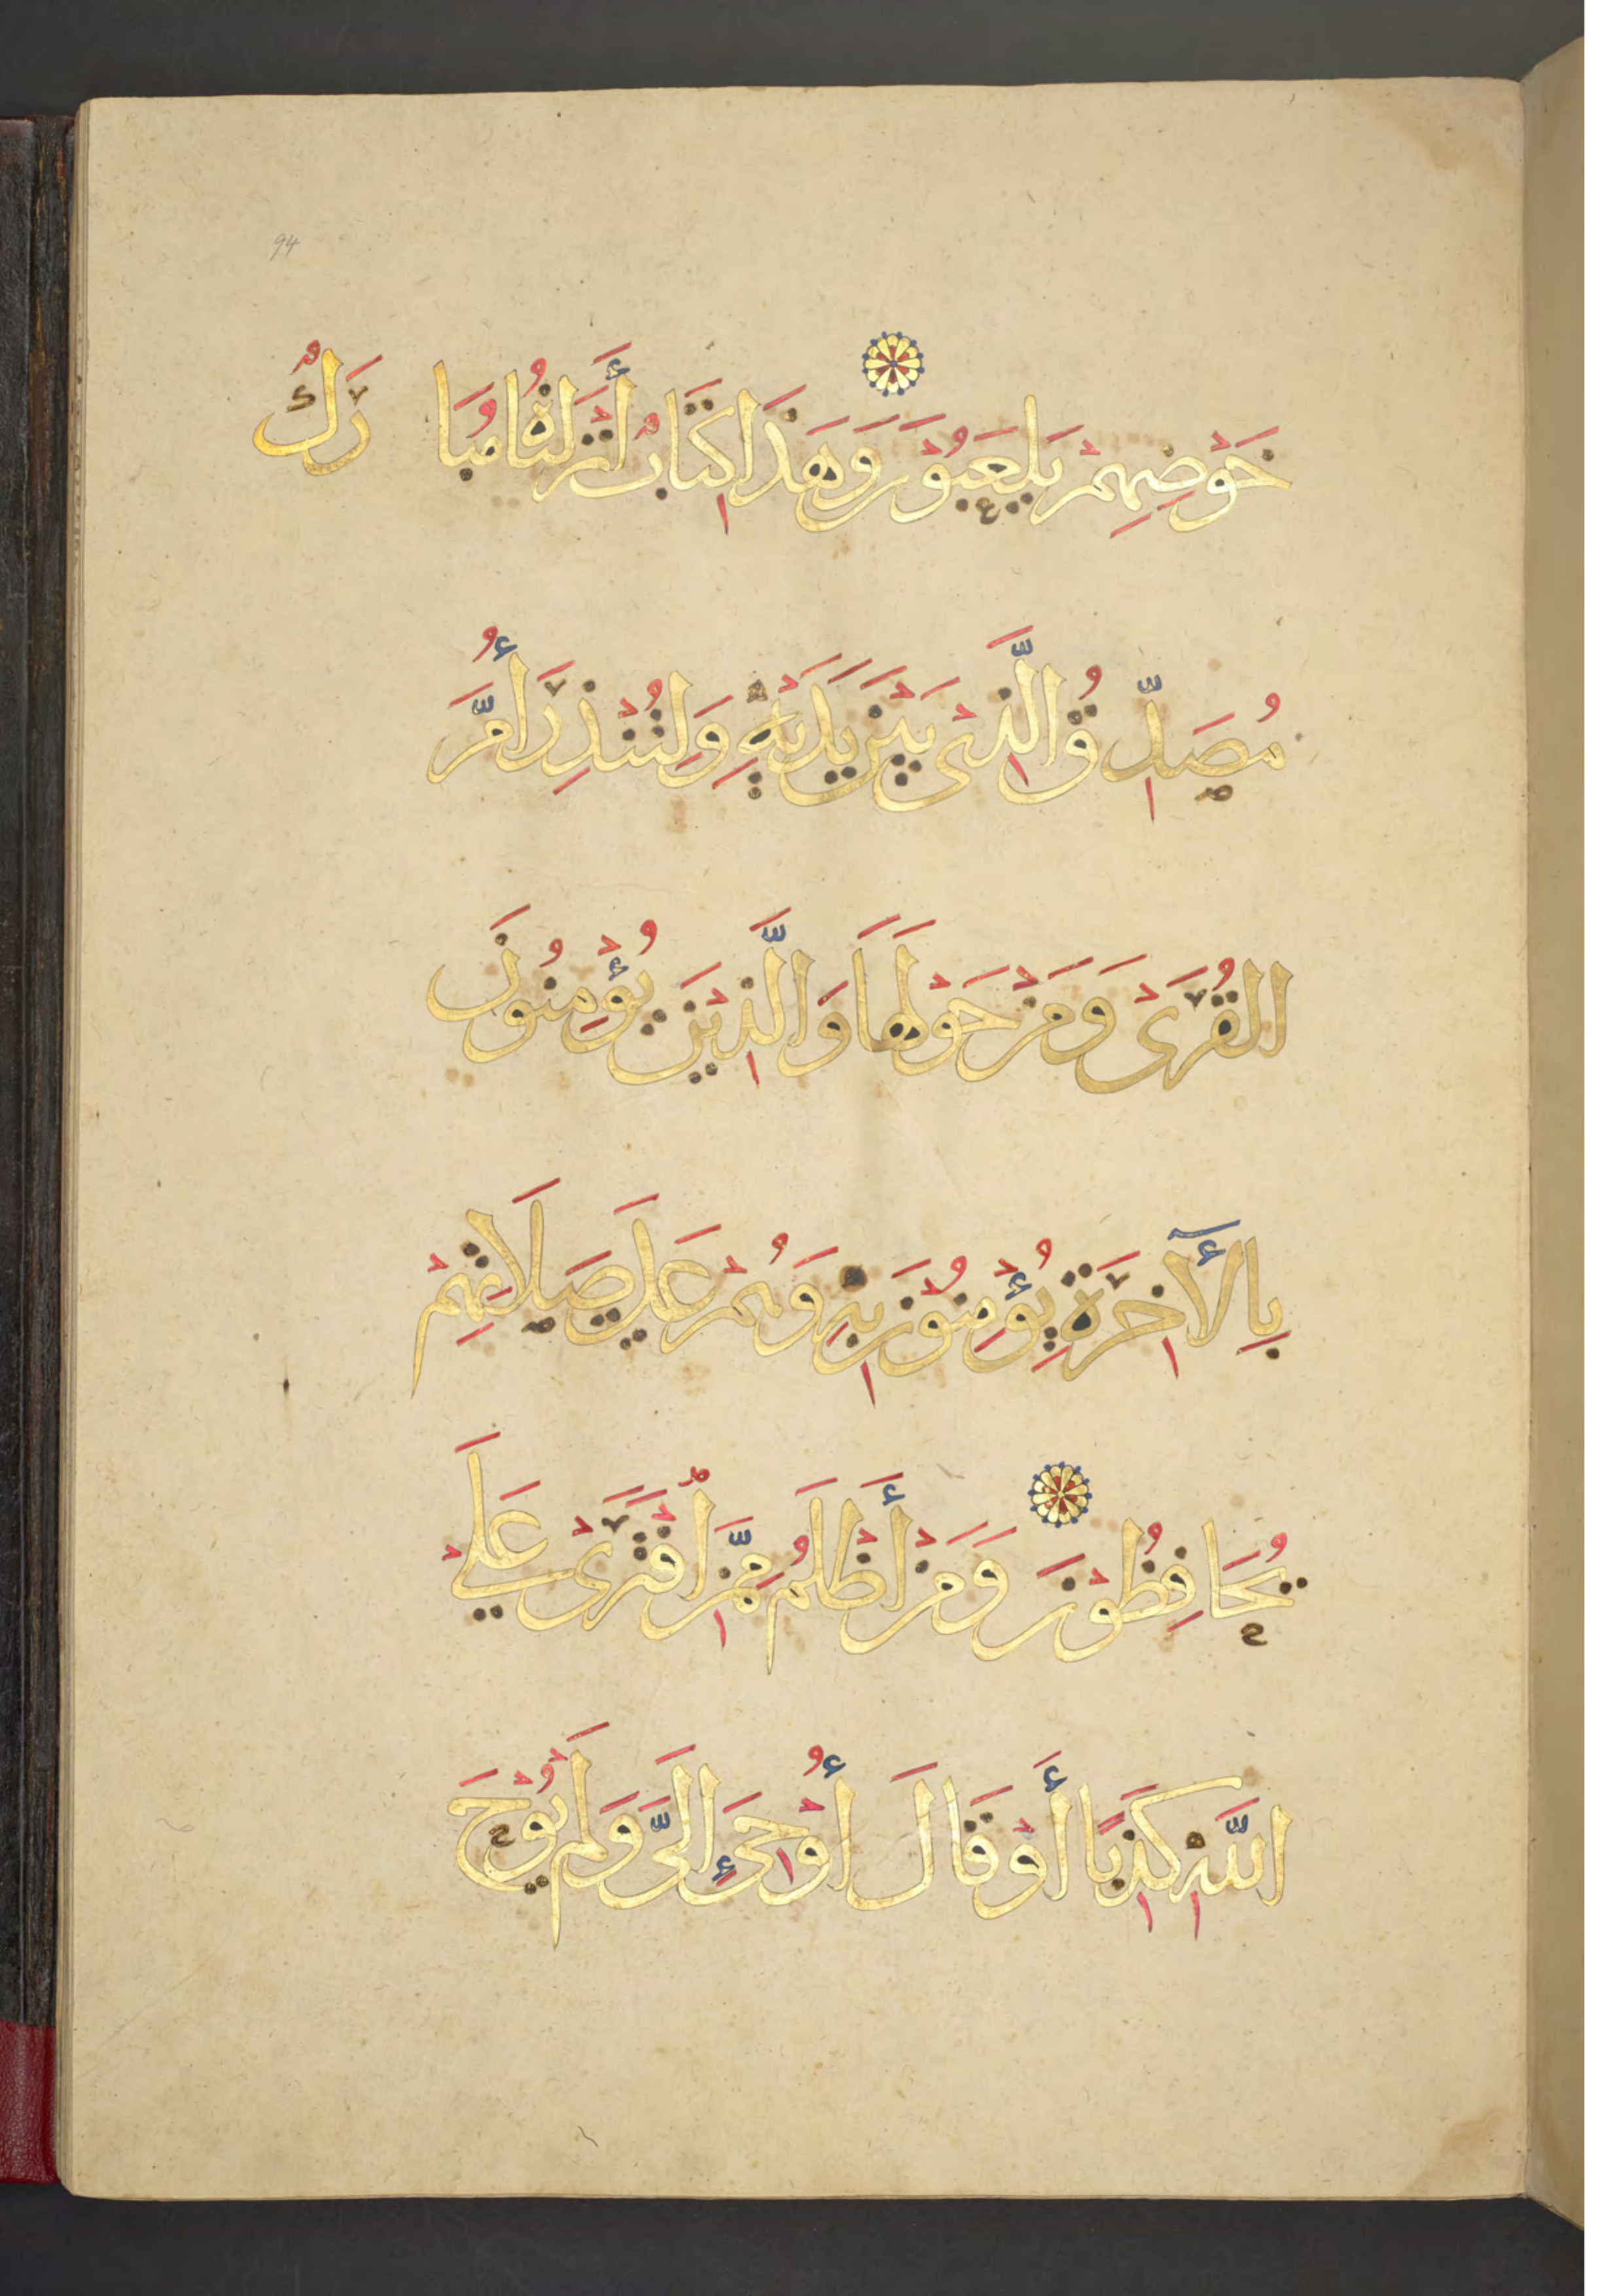 94
خَوْضِهِمْ يَلْعَبُوْنَ وَهَذَا كِتَابٌ أَنْزَلْنَاهُ مُبَارَكٌ
مُصَدِّقُ الَّذِىْ بَيْنَ يَدَيْهِ وَلِتُنْذِرَ أُمَّ
القُرَىْ وَمَنْ حَوْلَهَا وَالَّذِيْنَ يُؤْمِنُوْنَ
بِالآخِرَةِ يُؤْمِنُوْنَ بِهِ وَهُمْ عَلَى صَلَاتِهِمْ
يُحَافِظُوْنَ وَمَنْ أَظْلَمُ مِمَّنْ افْتَرَىْ عَلَىْ
اللَّهِ كَذِبًا أَوْ قَالَ أُوْحِىَ إِلَىَّ وَلَمْ يُوْحَ